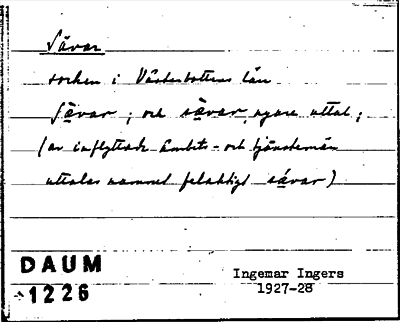 Sävar
socken i Västerbottens län
sävar, och sävar, yngre uttal;
(av inflyttade ämbets- och tjänstemän
uttalas namnet felaktigt sávar)
DAUM
1226
Ingemar Ingers
1927-28